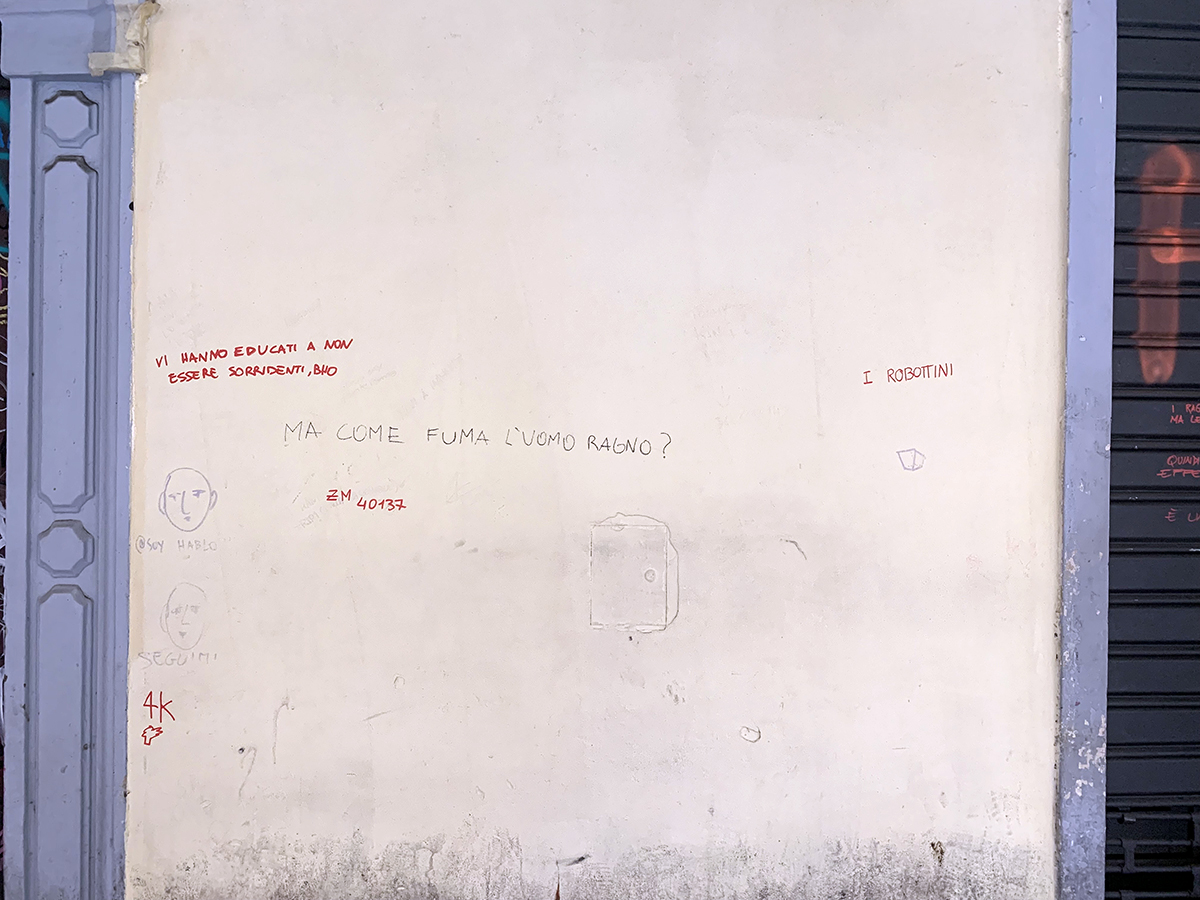 VI HANNO EDUCATI A NON
ESSERE SORRIDENTI, BHO
I ROBOTTINI
MA COME FUMA L'UOMO RAGNO?
ZM 40137
@SOY HABLO
SEGUIMI
4K
I RAG
MA LE
QUINDI
È